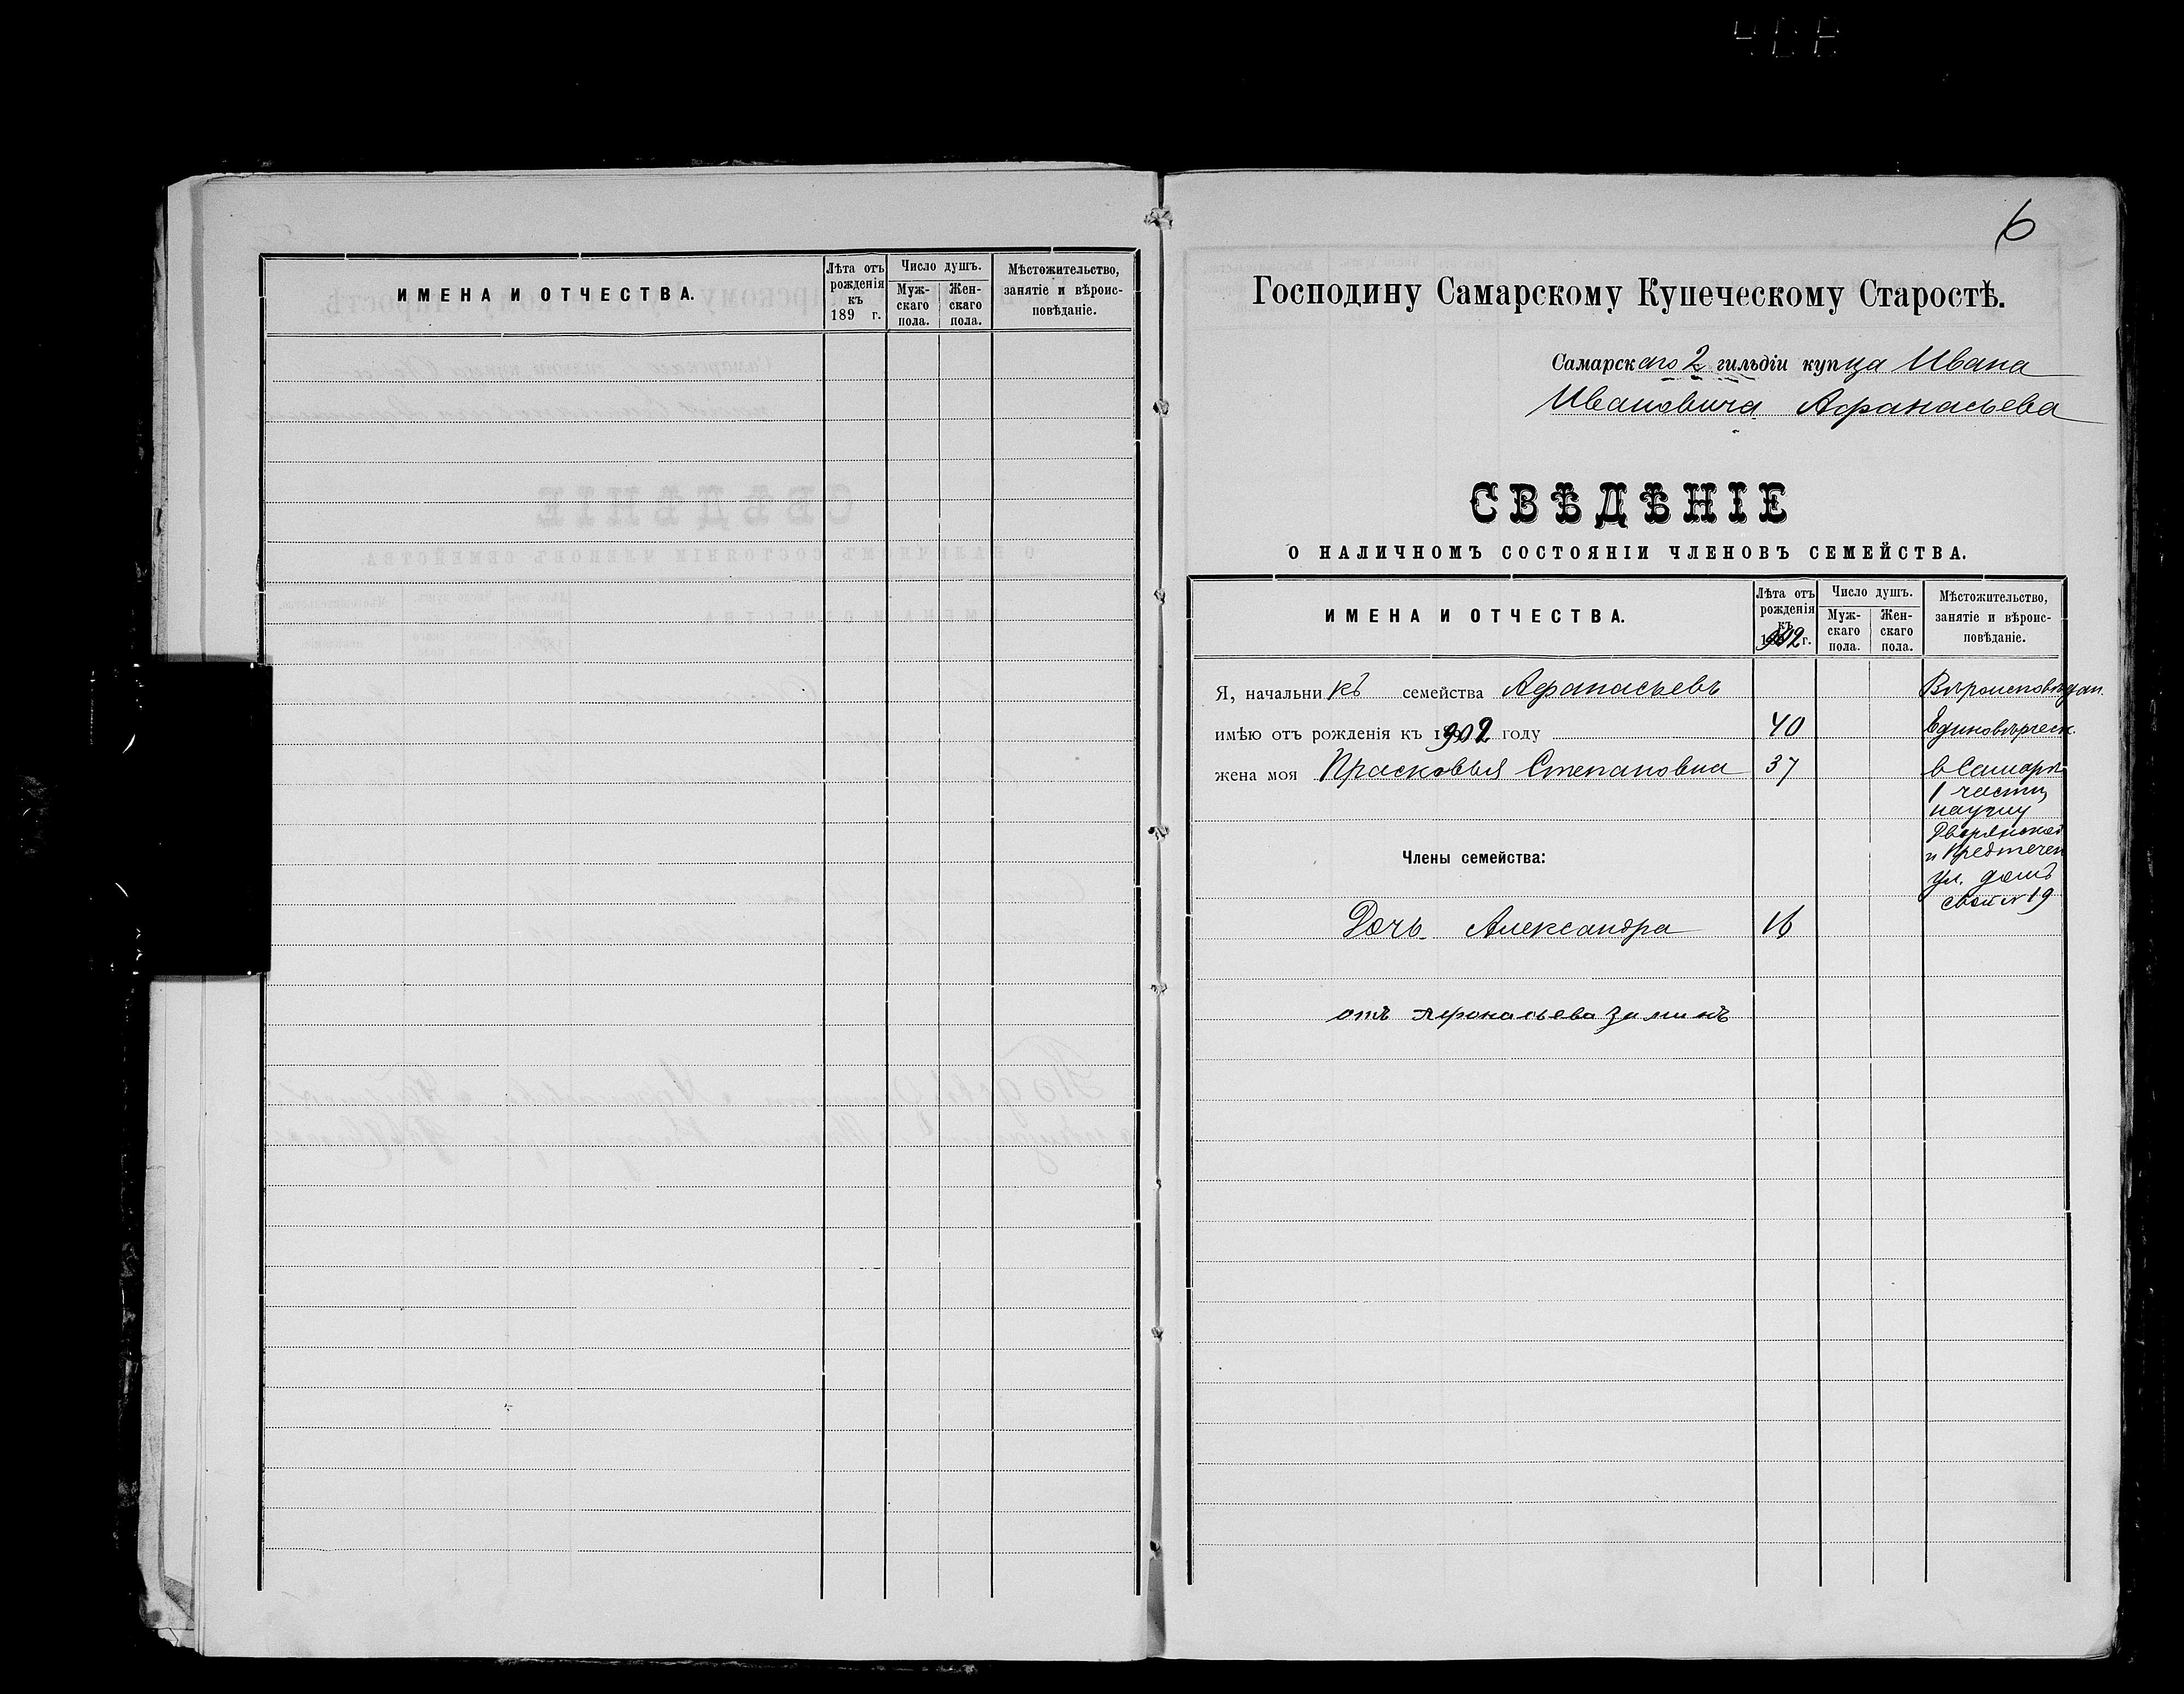 ИМЕНА И ОТЧЕСТВА.
Лѣта отъ рожденія къ 189 г.
Число душъ.
Мужскаго пола.
Женскаго пола.
Мѣстожительство, занятіе и вѣроисповѣданіе.
6
Господину Самарскому Купеческому Старостѣ.
Самарскаго 2 гильдіи купца Ивана
Ивановича Афанасьева
СВѢДѢНІЕ
О НАЛИЧНОМЪ СОСТОЯНІИ ЧЛЕНОВЪ СЕМЕЙСТВА.
ИМЕНА И ОТЧЕСТВА.
Лѣта отъ рожденія къ 1902 г.
Число душъ.
Мужскаго пола.
Женскаго пола.
Мѣстожительство, занятіе и вѣроисповѣданіе.
Я, начальникъ семейства Афанасьевъ Вѣроисповѣдан.
имѣю отъ рожденія къ 1902 году 40 Единовѣрческ.
жена моя Прасковья Степановна 37 в Самарѣ
1 части
на углу
Дворянской
и Предтечен
Члены семейства:
ул. домъ
свой № 19
Дочь Александра 16
отъ Афонасьева Зиминъ